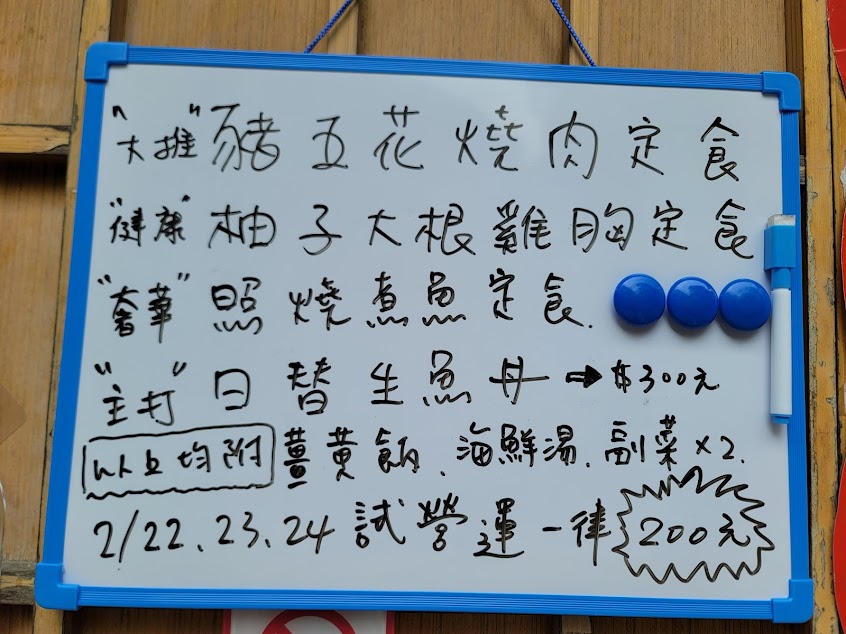 "大推" 豬五花燒肉定食
"健康" 柚子大根雞胸定食
"奢華" 照燒煮魚定食.
"主打" 日替生魚丼 ➡ $300元
以上均附 薑黃飯、海鮮湯、副菜×2.
2/22、23、24 試營運一律 200元